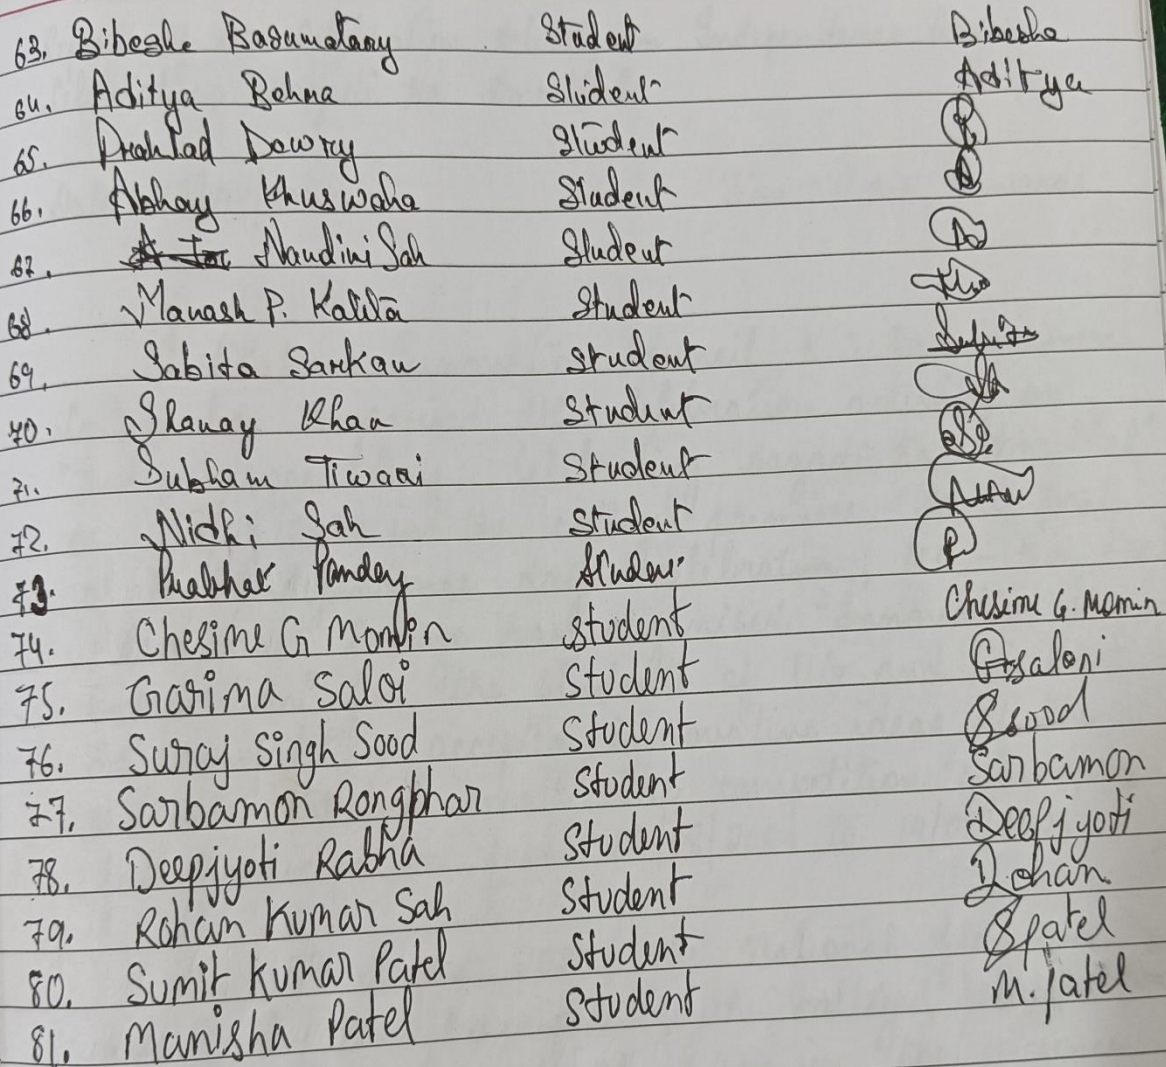 63. Bibeshe Basumatary Student Bibesha
64. Aditya Behna Student Aditya
65. Prahlad Dowry Student
66. Abhay Khuswaha Student
67. Nandini Sah Student
68. Manash P. Kalita Student
69. Sabita Sarkar Student
70. Shanay Khan Student
71. Subham Tiwari Student
72. Nidhi Sah Student
73. Prabhat Pandey Student
74. Chesime G Momin Student Chesime G. Momin
75. Garima Saloi Student Gsaloni
76. Suraj Singh Sood Student Ssood
77. Sarbamon Rongphar Student Sarbamon
78. Deepjyoti Rabha Student Deepjyoti
79. Rohan Kumar Sah Student Rohan
80. Sumit Kumar Patel Student Spatel
81. Manisha Patel Student M. Patel